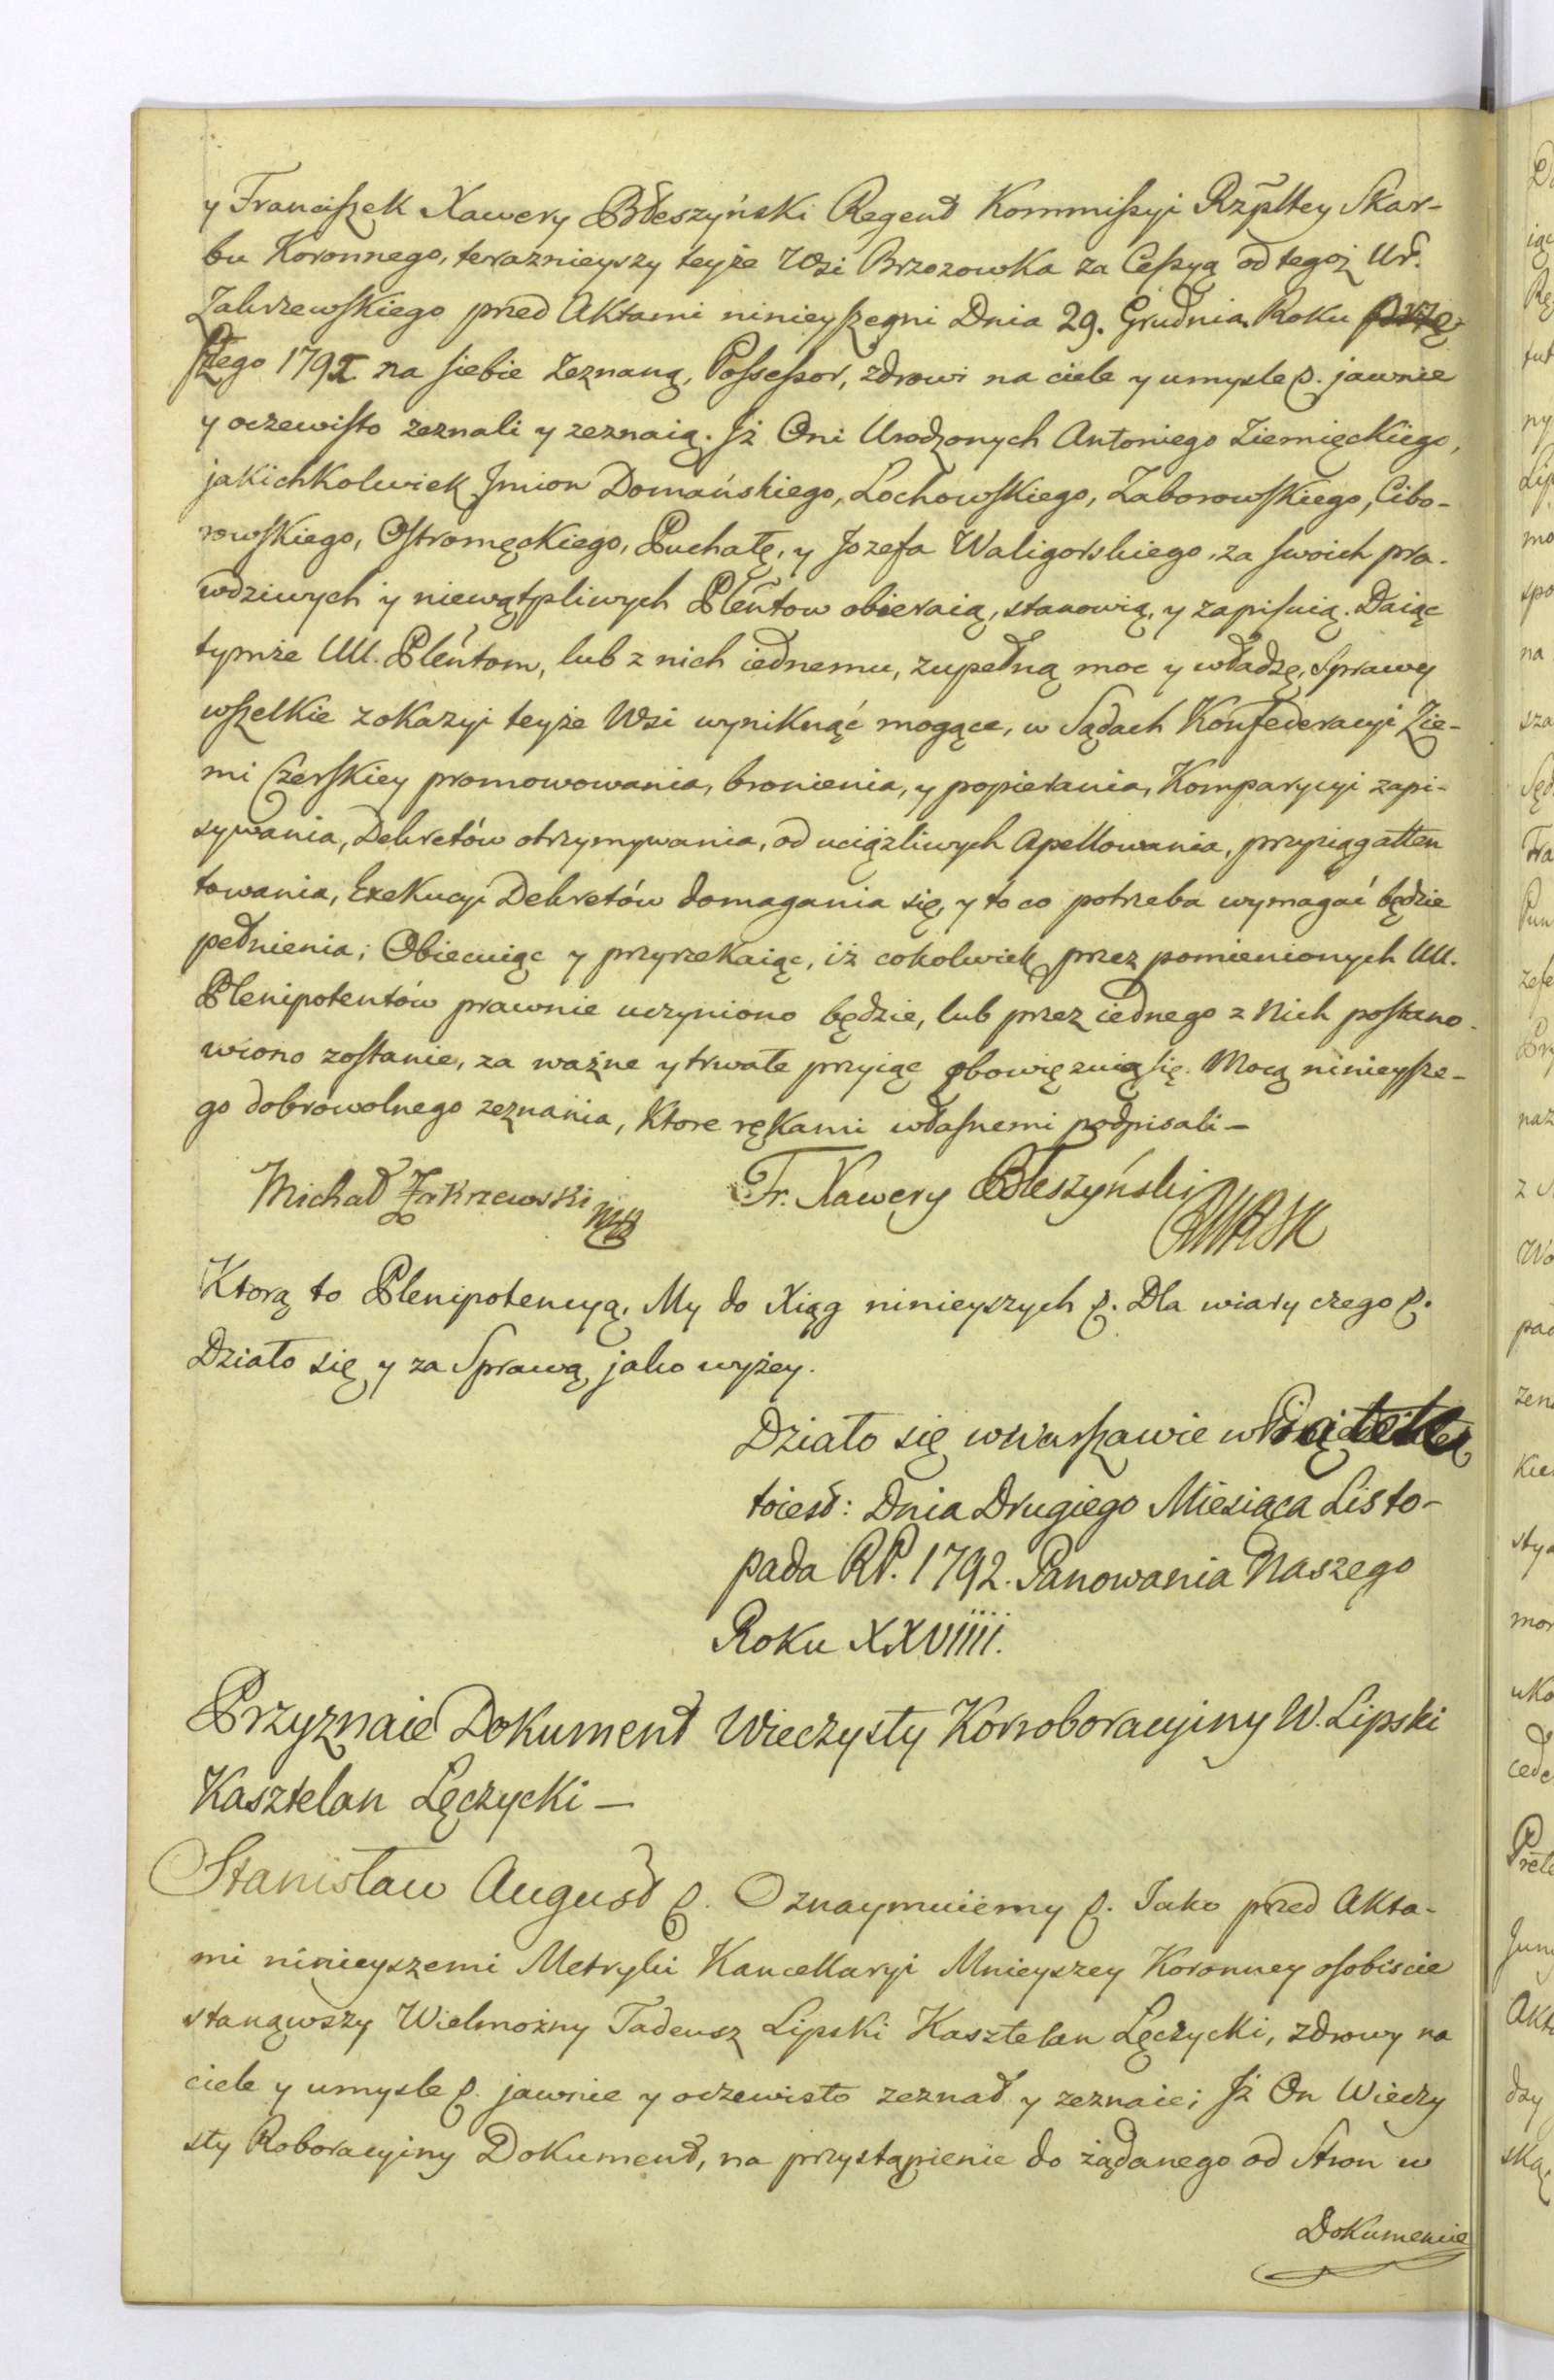 y Franciszek Xawery Błeszyński Regent Kommissyi Rzpltey Skar-
bu Koronnego, teraznieyszy teyże Wsi Brzozowka za Cessyą od tegoż Ur.
Zakrzewskiego przed Aktami ninieyszemi Dnia 29. Grudnia Roku prze-
szłego 1791 na siebie zeznaną, Possessor, zdrowi na ciele y umysle p. jawnie
y oczewisto zeznali y zeznaią. Jż Oni Urodzonych Antoniego Ziemięckiego,
jakichkolwiek Jmion Domańskiego, Lochowskiego, Zaborowskiego, Cibo-
rowskiego, Ostromęckiego, Puchałę, y Jozefa Waligorskiego, za swoich pra-
wdziwych y niewątpliwych Pleñtow obieraią, stanowią, y zapisuią. Daiąc
tymże UU. Pleñtom, lub z nich iednemu, zupełną moc y władzę, Sprawy
wszelkie z okazyi teyże Wsi wyniknąć mogące, w Sądach Konfederacyi Zie-
mi Czerskiey promowowania, bronienia, y popierania, Komparycyi zapi-
sywania, Dekretów otrzymywania, od uciążliwych Apellowania, przysiąg atten
towania, Exekucyi Dekretów domagania się, y to co potrzeba wymagać będzie
pełnienia; Obiecuiąc y przyrzekaiąc, iż cokolwiek przez pomienionych UU.
Plenipotentów prawnie uczyniono będzie, lub przez iednego z Nich postano-
wiono zostanie, za ważne y trwałe przyiąć obowięzuią się. Mocą ninieysze-
go dobrowolnego zeznania, Ktore rękami własnemi podpisali –
Michał Zakrzewski mp Fr. Xawery Błeszyński
Ktorą to Plenipotencyą, My do Xiąg ninieyszych p. Dla wiary czego p.
Działo się y za Sprawą jako wyżey.
Działo się w Warszawie w Piątek
toiest: Dnia Drugiego Miesiąca Listo-
pada RP. 1792. Panowania Naszego
Roku XXVIIII.
Przyznaie Dokument Wieczysty Korroboracyiny W. Lipski
Kasztelan Łęczycki –
Stanisław August p. Oznaymuiemy p. Jako przed Akta-
mi ninieyszemi Metryki Kancellaryi Mnieyszey Koronney osobiscie
stanąwszy Wielmożny Tadeusz Lipski Kasztelan Łęczycki, zdrowy na
ciele y umysle p. jawnie y oczewisto zeznał y zeznaie; Jż On Wieczy
sty Roboracyiny Dokument, na przystąpienie do żądanego od Stron w
Dokumencie